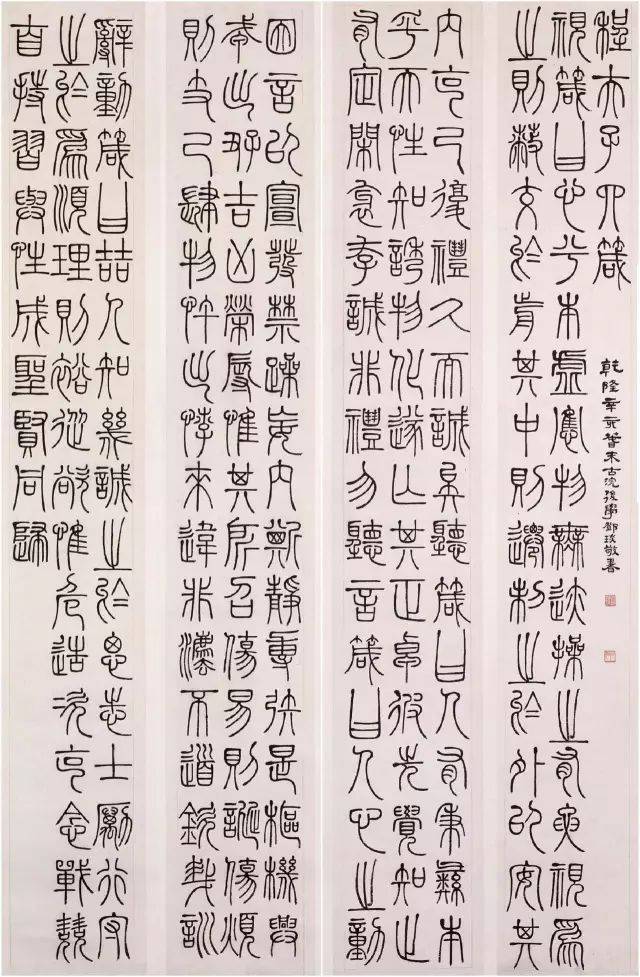 程夫子四箴
視箴曰心兮本虛應物無迹操之有要視爲
之則蔽交於前其中則遷制之於外以安其
内克己復禮久而誠矣聽箴曰人有秉彝本
乎天性知誘物化遂亡其正卓彼先覺知止
有定閑邪存誠非禮勿聽言箴曰人心之動
因言以宣發禁躁妄内斯靜專矧是樞機興
戎出好吉凶榮辱惟其所召傷易則誕傷煩
則支己肆物忤出悖來違非灋不道欽哉訓
辭動箴曰喆人知幾誠之於思志士勵行守
之於爲順理則裕從欲惟危造次克念戰兢
自持習與性成聖賢同歸
乾隆辛亥末古浣後學鄧琰敬書